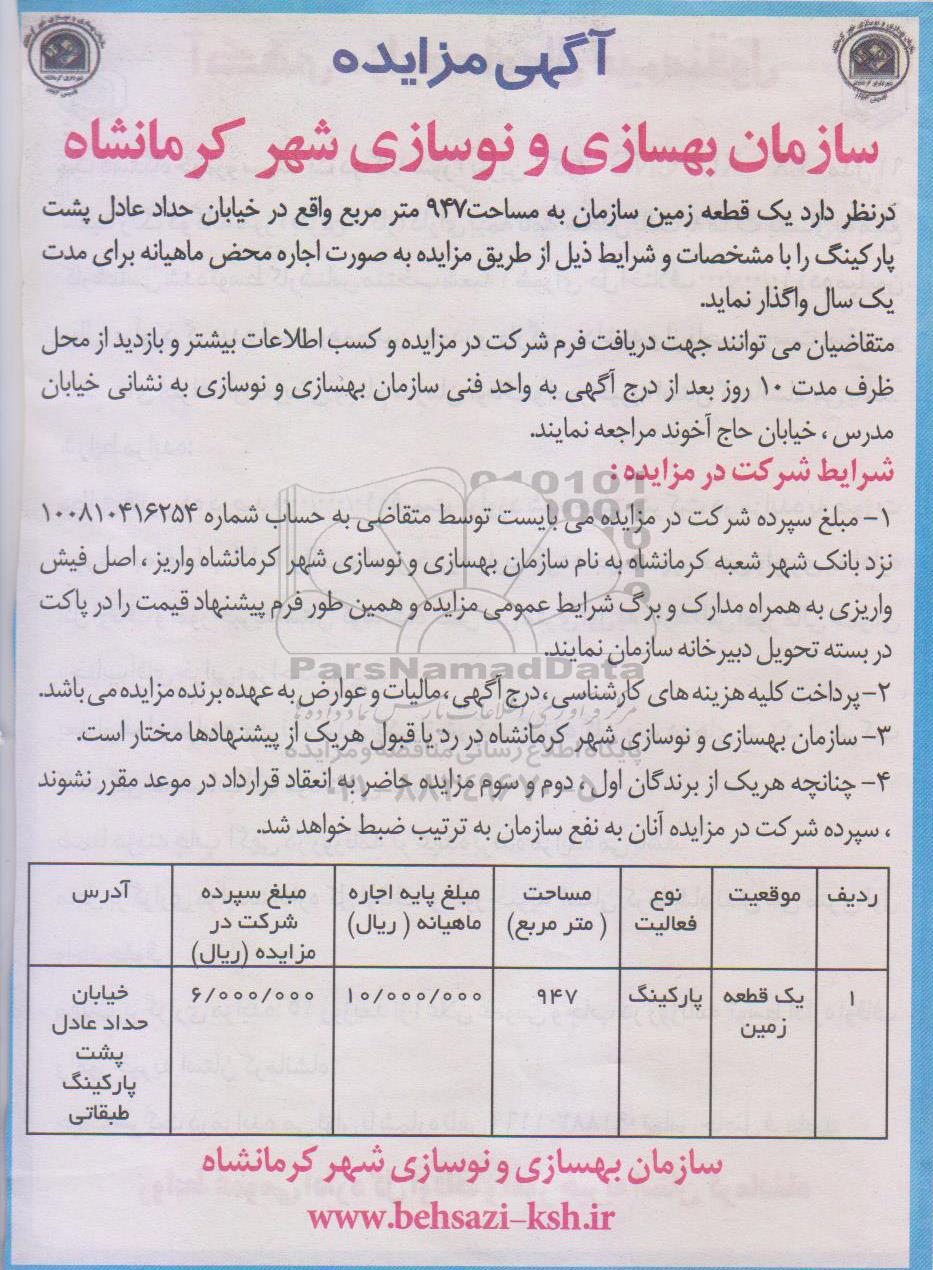 آگهی مزایده
سازمان بهسازی و نوسازی شهر کرمانشاه
درنظر دارد یک قطعه زمین سازمان به مساحت۹۴۷ متر مربع واقع در خیابان حداد عادل پشت
پارکینگ را با مشخصات و شرایط ذیل از طریق مزایده به صورت اجاره محض ماهیانه برای مدت
یک سال واگذار نماید.
متقاضیان می توانند جهت دریافت فرم شرکت در مزایده و کسب اطلاعات بیشتر و بازدید از محل
ظرف مدت ۱۰ روز بعد از درج آگهی به واحد فنی سازمان بهسازی و نوسازی به نشانی خیابان
مدرس ، خیابان حاج آخوند مراجعه نمایند.
شرایط شرکت در مزایده :
۱- مبلغ سپرده شرکت در مزایده می بایست توسط متقاضی به حساب شماره ۱۰۰۸۱۰۴۱۶۲۵۴
نزد بانک شهر شعبه کرمانشاه به نام سازمان بهسازی و نوسازی شهر کرمانشاه واریز ، اصل فیش
واریزی به همراه مدارک و برگ شرایط عمومی مزایده و همین طور فرم پیشنهاد قیمت را در پاکت
در بسته تحویل دبیرخانه سازمان نمایند.
ParsNamadData
۲- پرداخت کلیه هزینه های کارشناسی ، درج آگهی ، مالیات و عوارض به عهده برنده مزایده می باشد.
۳- سازمان بهسازی و نوسازی شهر کرمانشاه در رد یا قبول هریک از پیشنهادها مختار است.
پایگاه اطلاع رسانی مناقصه و مزایده
۴- چنانچه هریک از برندگان اول ، دوم و سوم مزایده حاضر به انعقاد قرارداد در موعد مقرر نشوند
، سپرده شرکت در مزایده آنان به نفع سازمان به ترتیب ضبط خواهد شد.
ردیف موقعیت نوع فعالیت مساحت ( متر مربع) مبلغ پایه اجاره ماهیانه ( ریال) مبلغ سپرده شرکت در مزایده (ریال) آدرس
۱ یک قطعه زمین پارکینگ ۹۴۷ ۱۰/۰۰۰/۰۰۰ ۶/۰۰۰/۰۰۰ خیابان حداد عادل پشت پارکینگ طبقاتی
سازمان بهسازی و نوسازی شهر کرمانشاه
www.behsazi-ksh.ir